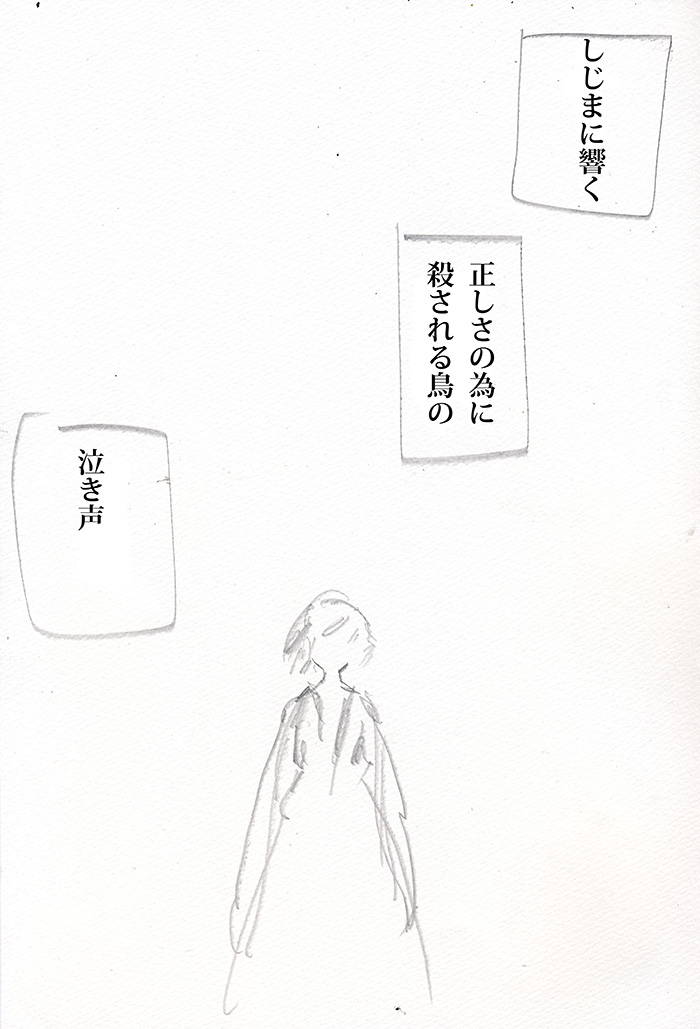 しじまに響く
正しさの為に
殺される鳥の
泣き声